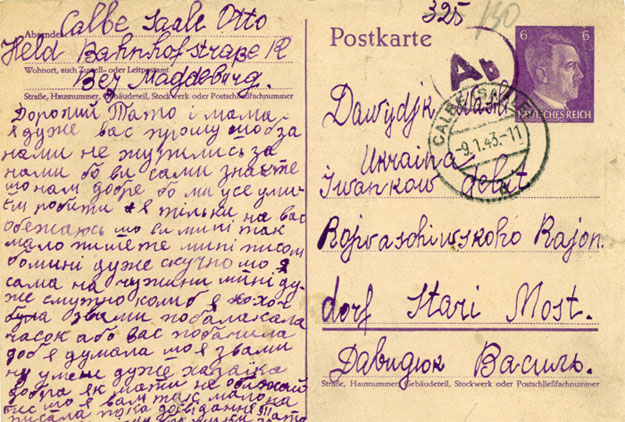 Absender:
Calbe Saale Otto
Held Bahnhofstraße 12
Wohnort, auch Zustell- oder Leitpostamt
Bez Magdeburg.
Straße, Hausnummer, Gebäudeteil, Stockwerk oder Postschließfachnummer
Дорогий Тато і мамо
я дуже вас прошу шоб за
нами не журились за
нами бо ви сами знаєте
шо нам добре бо ми усе уми
єм робити я тільки на вас
обежаюсь шо ви мині так
мало пишете мині писом
бо мині дуже скучно шо я
сама на чужини мині ду
же смутно колиб я хоч
була з вами побалакала
часок або вас побачила
я думала шо я з вами
ну умене дуже хазаїка
добра як мати не обижай
тис шо я вам так мало на
писала пока до свідання!!!
325
130
Postkarte
Ab
6 6
DEUTSCHES REICH
CALBE (SAALE)
-9.1.43.-11
Dawydjk
Ukraina
Iwankow gebit
Rojwaschiwskoho Rajon.
dorf Stari Most.
Давидюк Василь.
Straße, Hausnummer, Gebäudeteil, Stockwerk oder Postschließfachnummer